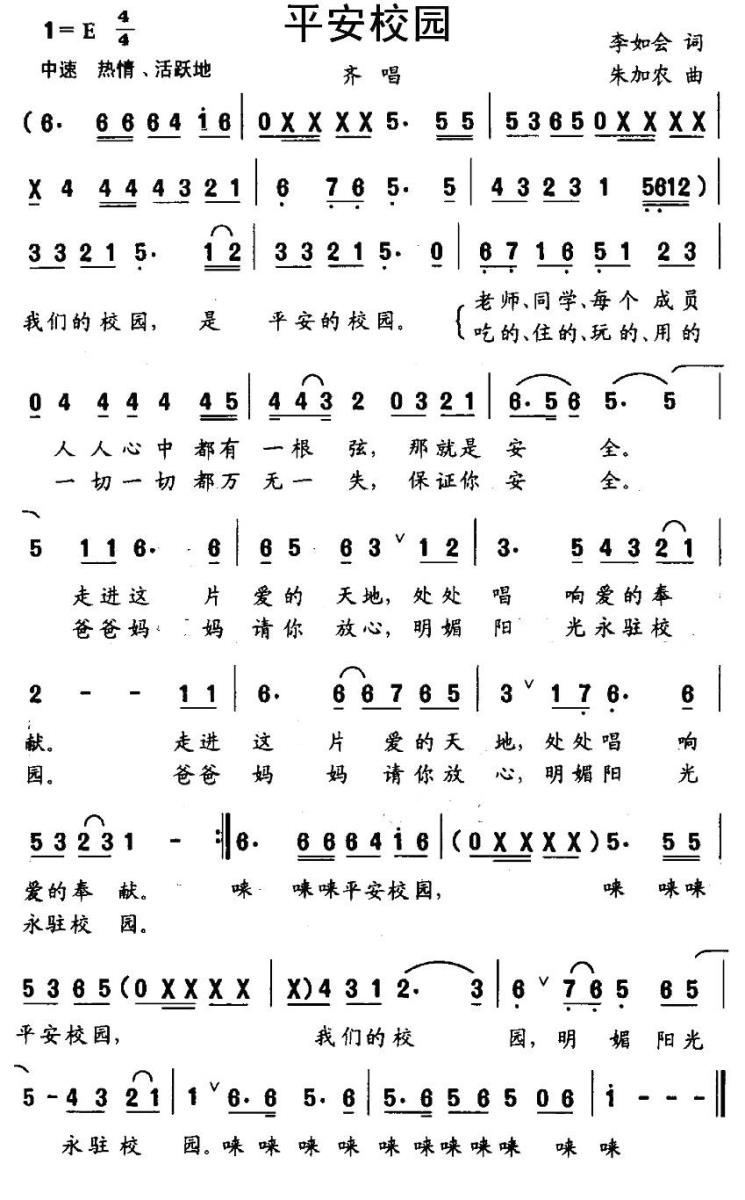 平安校园
1=E 4/4
李如会 词
中速 热情、活跃地
齐 唱
朱加农 曲
(6· 6 6 6 4 i 6 | 0 X X X X X 5· 5 5 | 5 3 6 5 0 X X X X |
X 4 4 4 4 3 2 1 | 6 7 6 5· 5 | 4 3 2 3 1 5612)
3 3 2 1 5· 1 2 | 3 3 2 1 5· 0 | 6 7 1 6 5 1 2 3
我们的校园, 是 平安的校园。 老师、同学、每个 成员
吃的、住的、玩的、用的
0 4 4 4 4 4 5 | 4 4 3 2 0 3 2 1 | 6·5 6 5· 5 |
人 人 心 中 都有 一根 弦, 那就是 安 全。
一 切 一 切 都万 无一 失, 保证你 安 全。
5 1 1 6· 6 | 6 5 6 3 ∨ 1 2 | 3· 5 4 3 2 1 |
走进这 片 爱的 天地, 处处 唱 响爱的奉
爸爸妈 妈 请你 放心, 明媚 阳 光永驻校
2 - - 1 1 | 6· 6 6 7 6 5 | 3 ∨ 1 7 6· 6 |
献。 走进 这 片 爱的天 地, 处处唱 响
园。 爸爸 妈 妈 请你放 心, 明媚阳 光
5 3 2 3 1 - :‖ 6· 6 6 6 4 i 6 | (0 X X X X) 5· 5 5 |
爱的奉 献。 唻 唻唻平安校园, 唻 唻唻
永驻校 园。
5 3 6 5 (0 X X X X | X) 4 3 1 2· 3 | 6 ∨ 7 6 5 6 5
平安校园, 我们的校 园, 明 媚 阳光
5 - 4 3 2 1 | 1 ∨ 6· 6 5· 6 | 5· 6 5 6 5 0 6 | i - - - ‖
永驻校 园。唻 唻 唻 唻 唻 唻唻唻 唻 唻